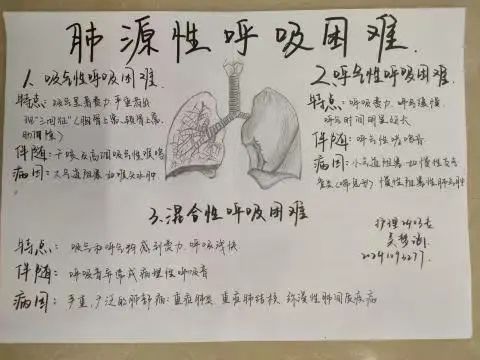 肺源性呼吸困难.
1. 吸气性呼吸困难.
特点: 吸气显著费力 严重者出
现"三凹征"(胸骨上窝、锁骨上窝、
肋间隙)
伴随: 干咳及高调吸气性喉鸣
病因: 大气道阻塞 如喉头水肿
2.呼气性呼吸困难.
特点: 呼气费力、呼气缓慢,
呼气时间明显延长
伴随: 呼气性哮鸣音
病因: 小气道阻塞 如慢性支气
管炎(喘息型) 慢性阻塞性肺气肿
3.混合性呼吸困难
特点: 吸气和呼气均感到费力、呼吸浅快
伴随: 呼吸音异常或病理性呼吸音
病因: 严重、广泛的肺部病: 重症肺炎、重症肺结核、弥漫性肺间质疾病
护理